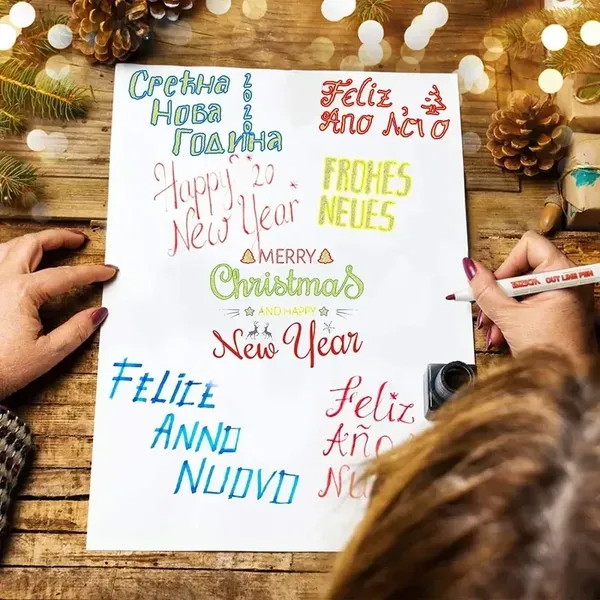 Среќна
Нова
Година
2020
Feliz
Ano Novo
Happy 20
New Year
FROHES
NEUES
MERRY
Christmas
AND HAPPY
New Year
FELICE
ANNO
NUOVO
Feliz
Año
OUT LINE PEN